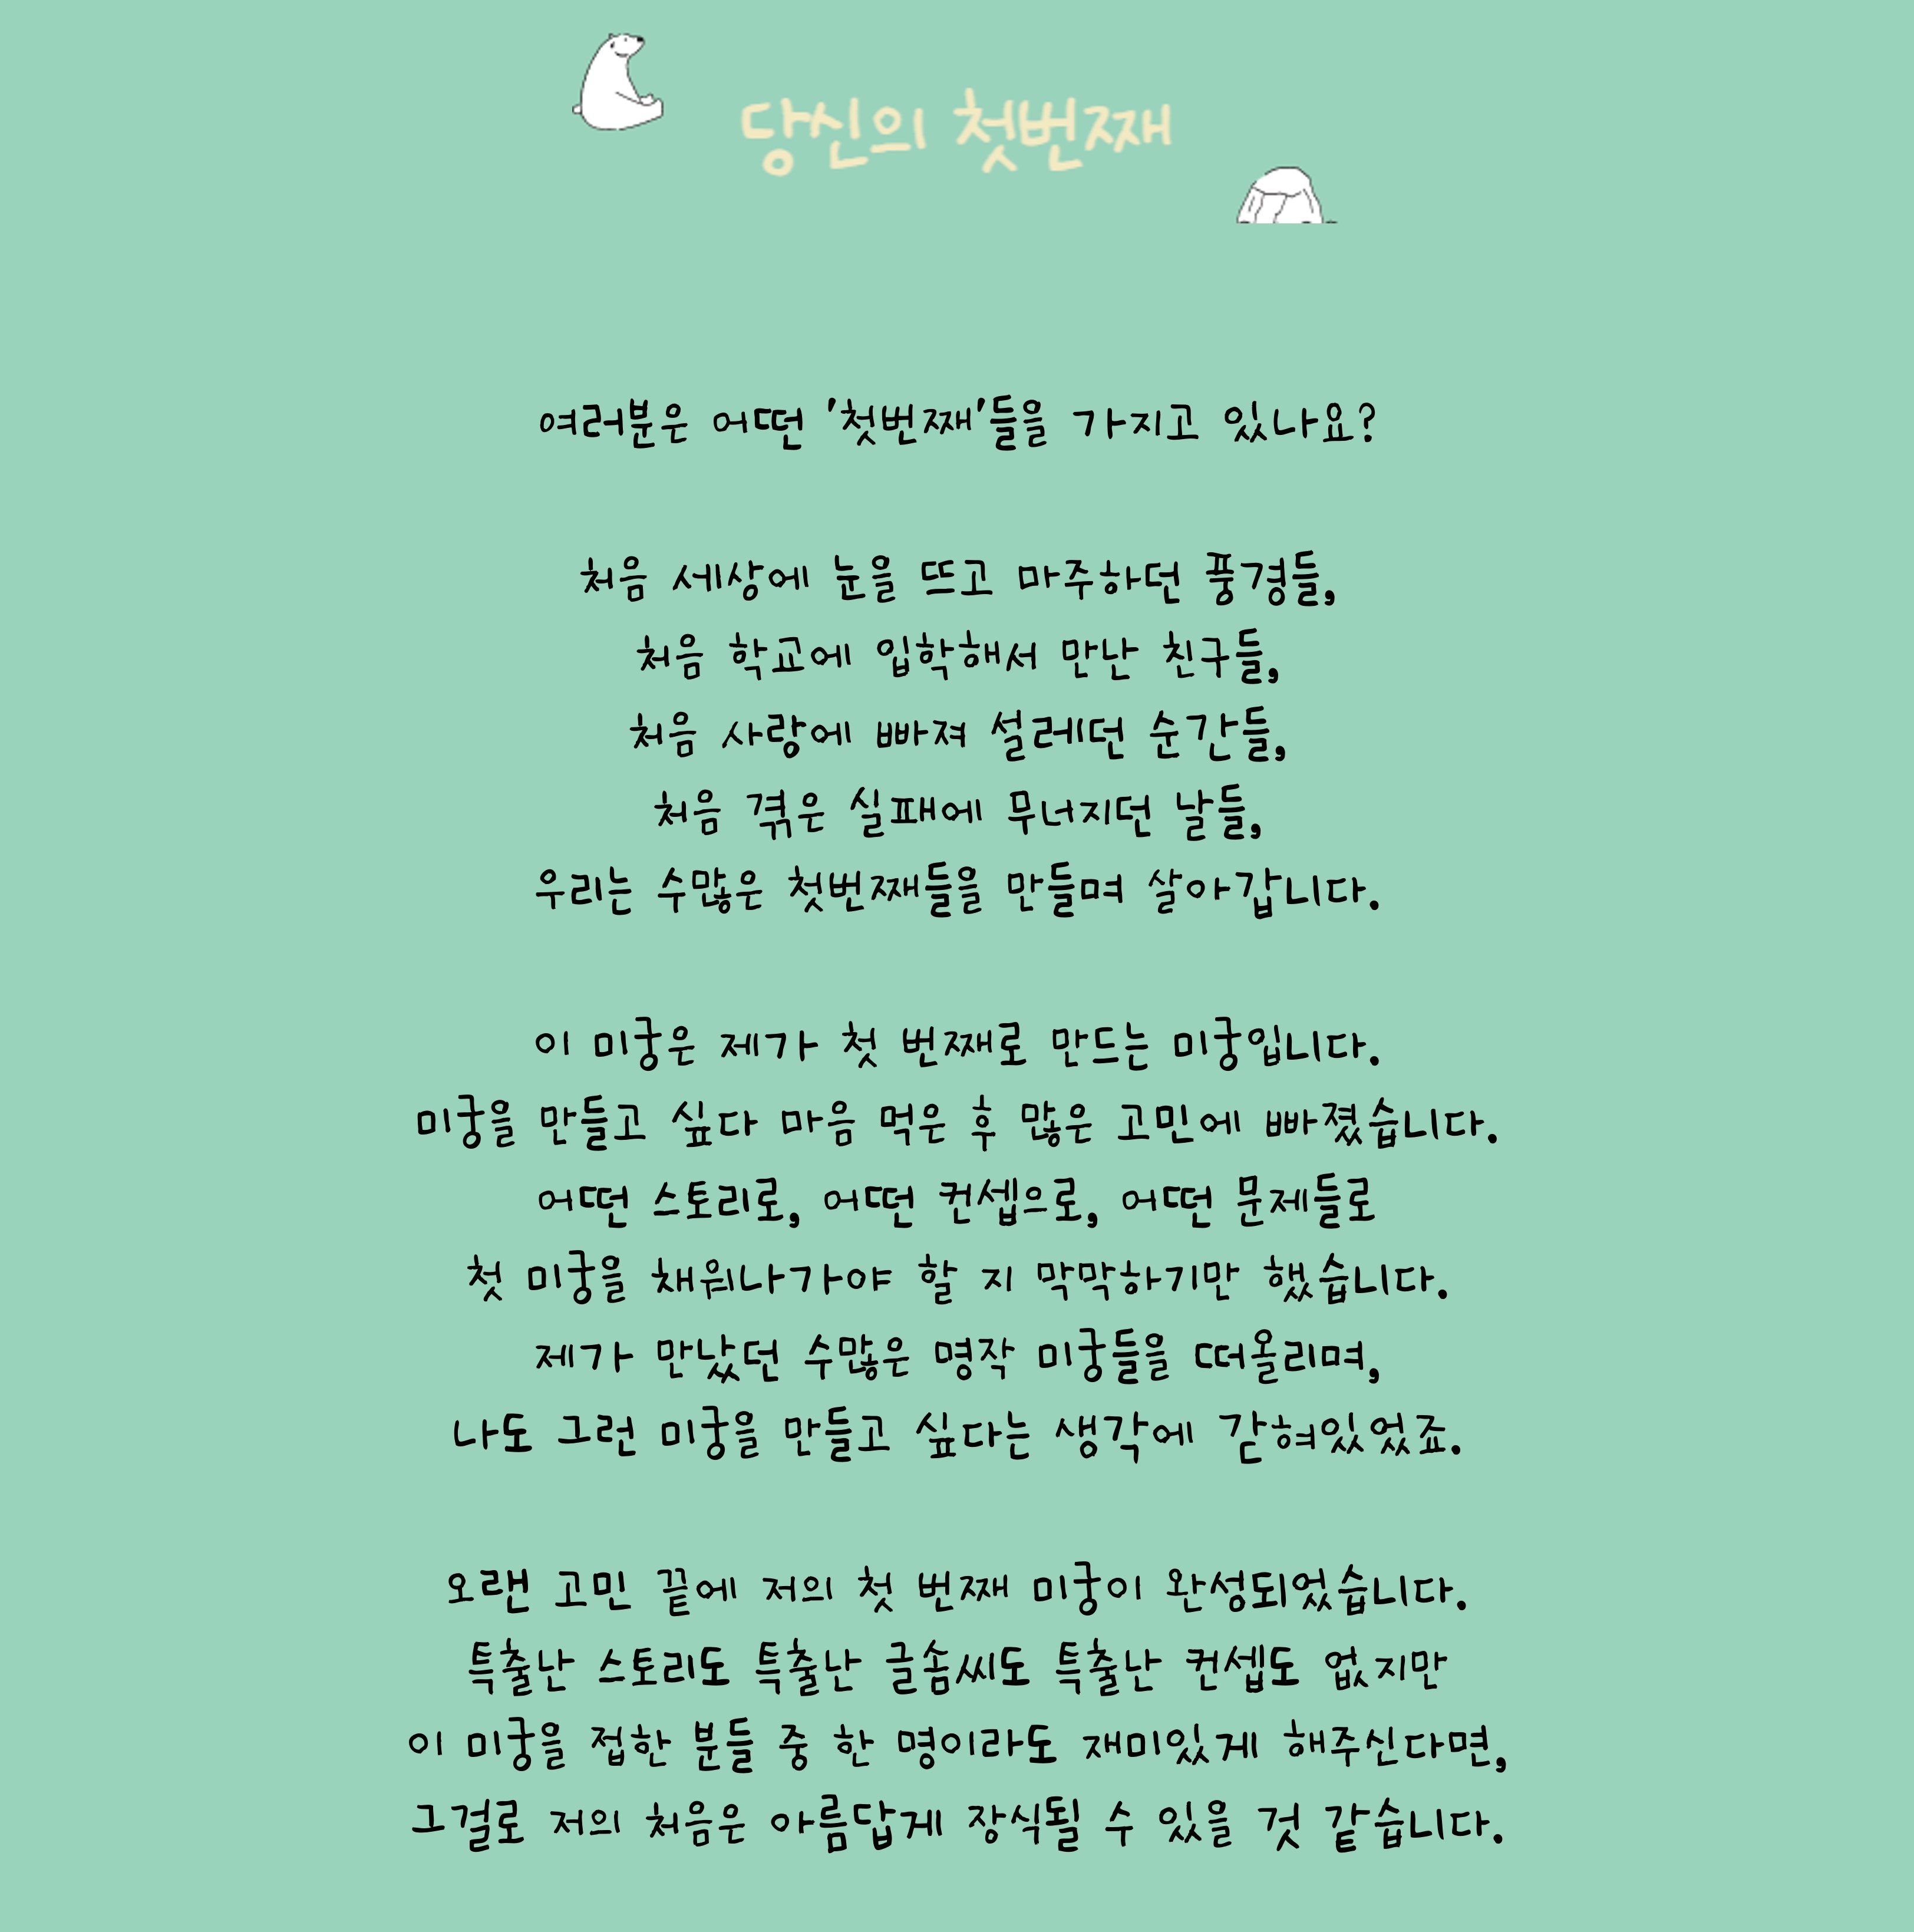 당신의 첫번째
여러분은 어떤 '첫번째'들을 가지고 있나요?
처음 세상에 눈을 뜨고 마주하던 풍경들,
처음 학교에 입학해서 만난 친구들,
처음 사랑에 빠져 설레던 순간들,
처음 겪은 실패에 무너지던 날들,
우리는 수많은 첫번째들을 만들며 살아갑니다.
이 미궁은 제가 첫 번째로 만드는 미궁입니다.
미궁을 만들고 싶다 마음 먹은 후 많은 고민에 빠졌습니다.
어떤 스토리로, 어떤 컨셉으로, 어떤 문제들로
첫 미궁을 채워나가야 할 지 막막하기만 했습니다.
제가 만났던 수많은 명작 미궁들을 떠올리며,
나도 그런 미궁을 만들고 싶다는 생각에 갇혀있었죠.
오랜 고민 끝에 저의 첫 번째 미궁이 완성되었습니다.
특출난 스토리도 특출난 글솜씨도 특출난 컨셉도 없지만
이 미궁을 접한 분들 중 한 명이라도 재미있게 해주신다면,
그걸로 저의 처음은 아름답게 장식될 수 있을 것 같습니다.